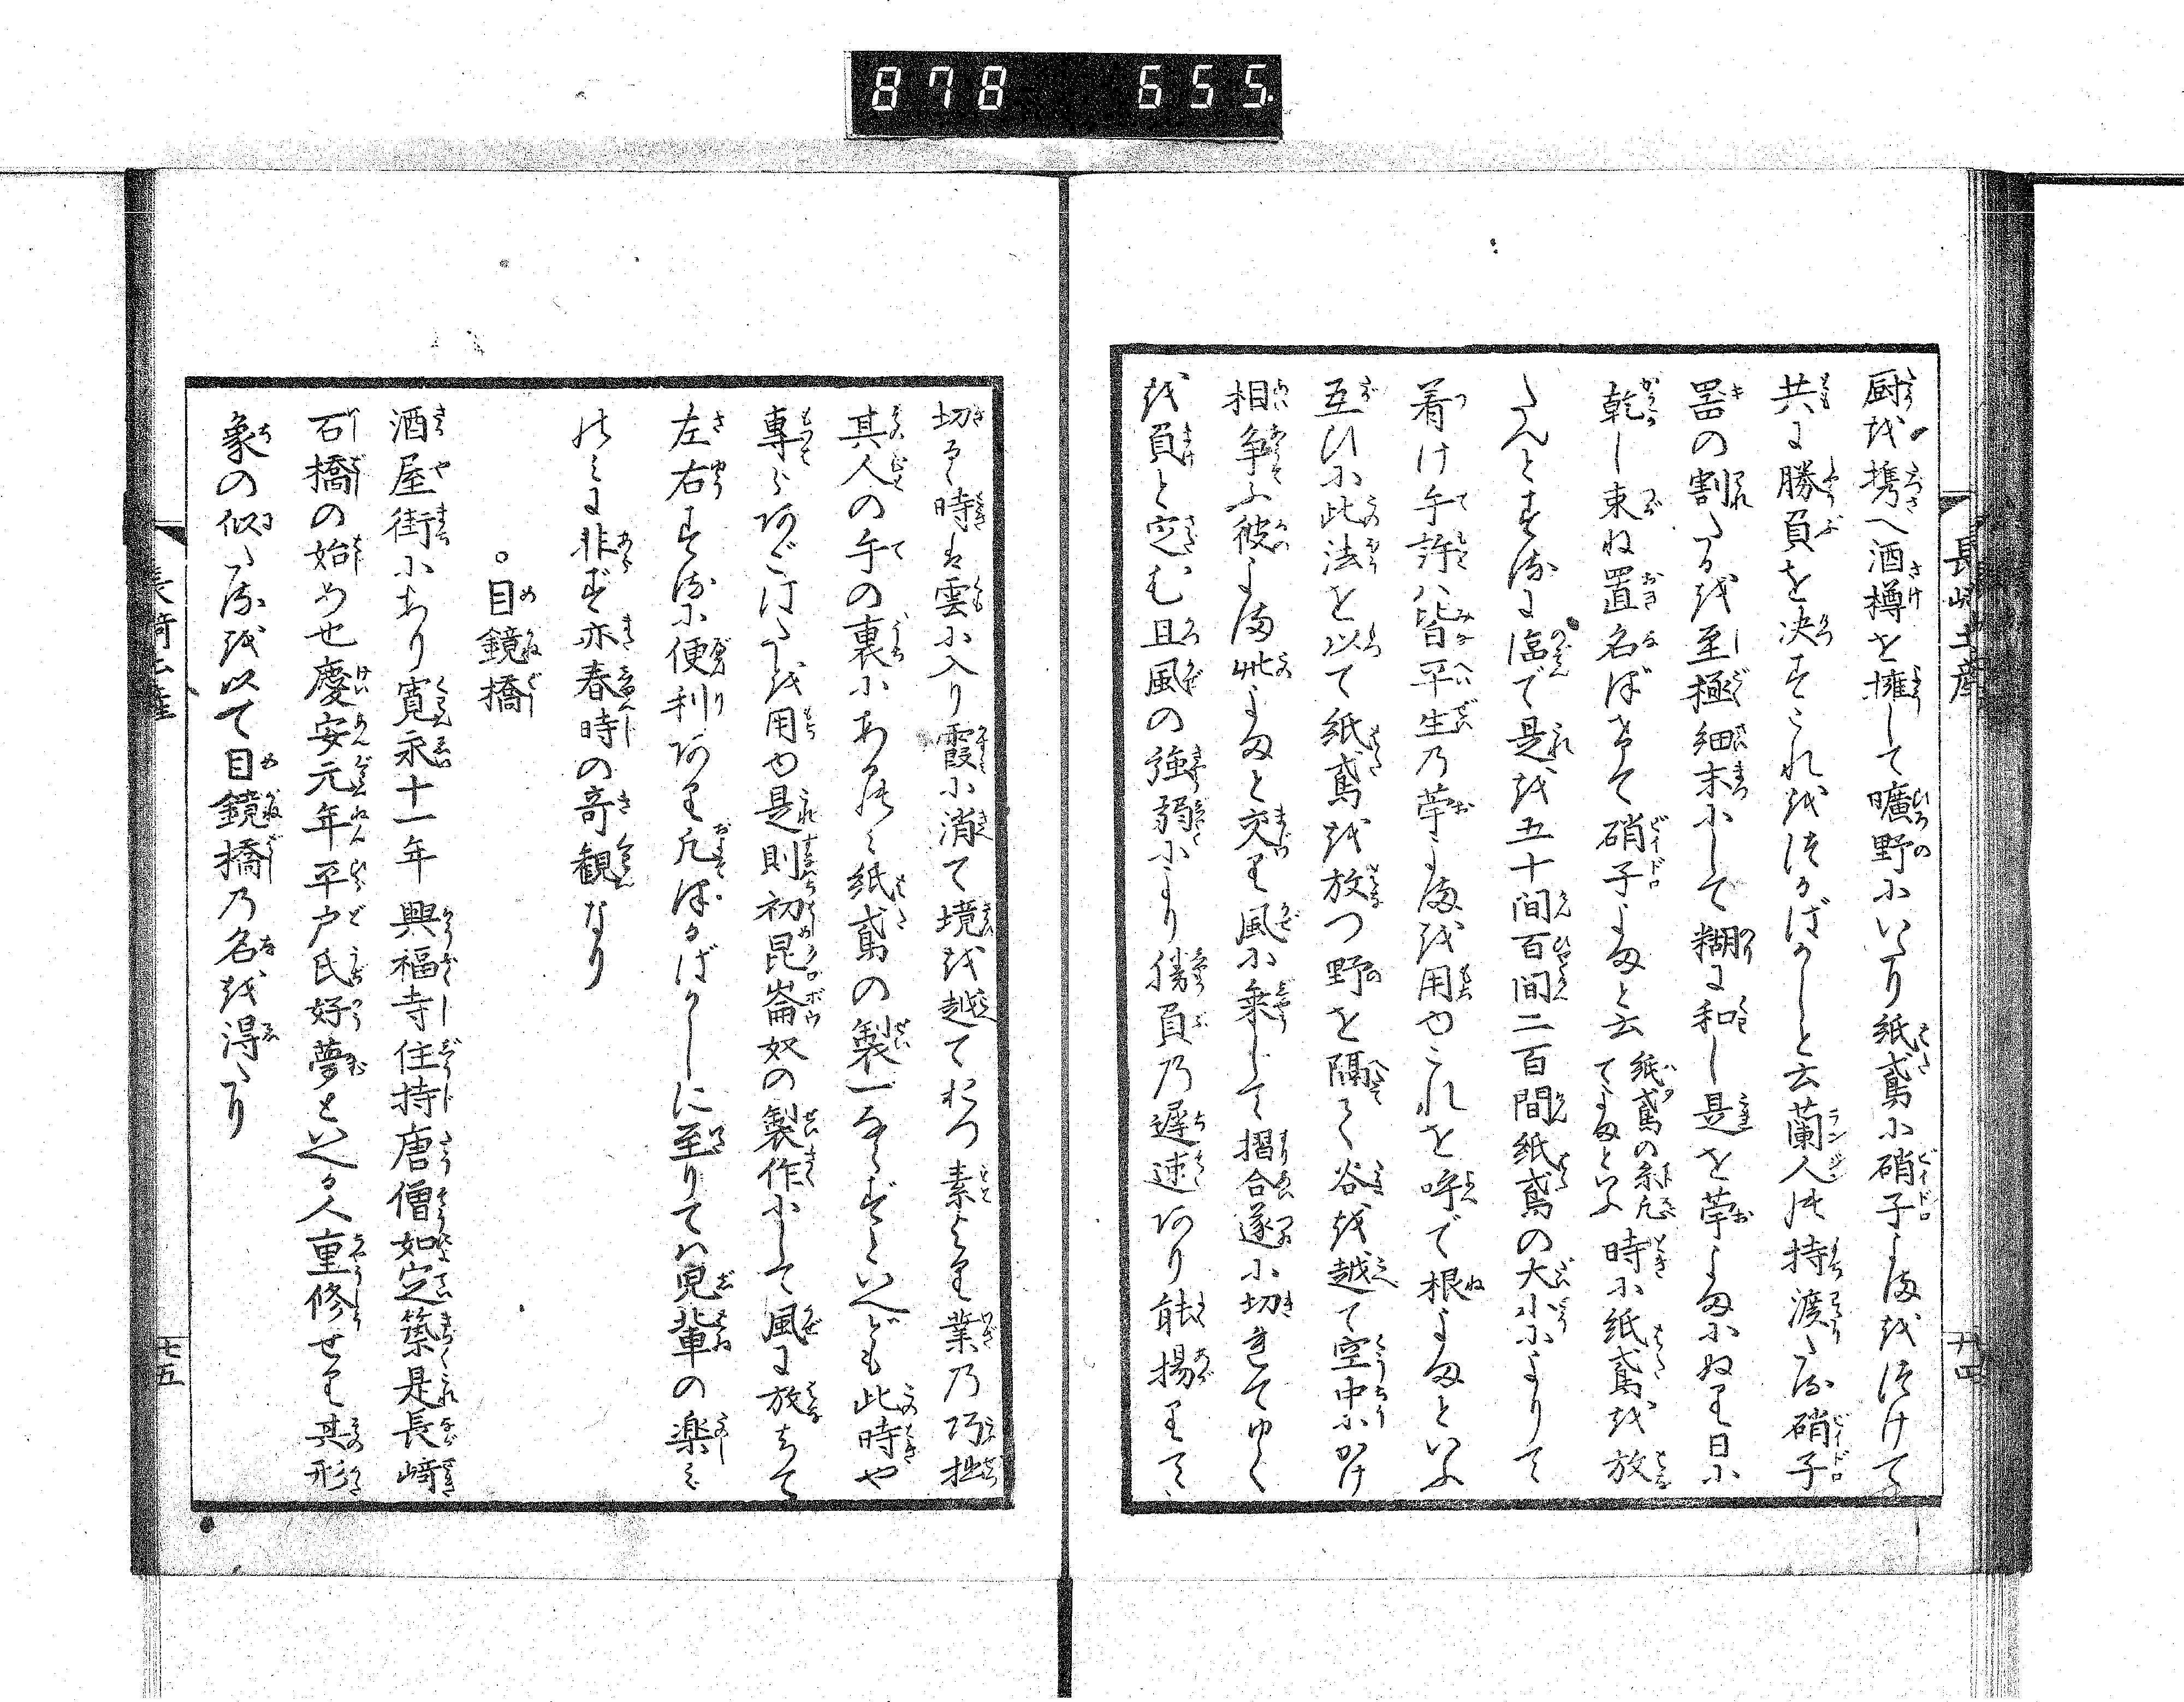 878 655
長崎土産
廚を携へ酒樽を擁して曠野にいたり紙鳶に硝子よまをつけて
共に勝負を決すこれをつるばかしと云蘭人の持渡たる硝子
器の割たるを至極細末にして糊に和し是を苧よまにぬり日に
乾し束ね置名ばさて硝子よまと云紙鳶の糸凡てよまといふ時に紙鳶を放
たんとするに臨で是を五十間百間二百間紙鳶の大小によりて
着け手許は皆平生の苧よまを用ゆこれを呼で根よまといふ
互ひに此法を以て紙鳶を放つ野を隔て谷を越て空中にかけ
相争ふ彼よま此よまと交り風に乗じて摺合遂に切きてゆく
を負と定む且風の強弱により勝負の遅速あり能揚りて
切るゝ時は雲に入り霞に消て境を越ておつ素より業の巧拙
其人の手の裏にあれども紙鳶の製一ならずといへども此時や
専らあごばたを用ゆ是則初昆崙奴の製作にして風に放ちて
左右するに便利あり凡つるばかしに至りては児輩の楽み
のみに非ず亦春時の奇観なり
。目鏡橋
酒屋街にあり寛永十一年興福寺住持唐僧如定築是長崎
石橋の始めせ慶安元年平戸氏好夢といへる人重修せり其形
象の似たるを以て目鏡橋の名を得たり
長崎土産
七五